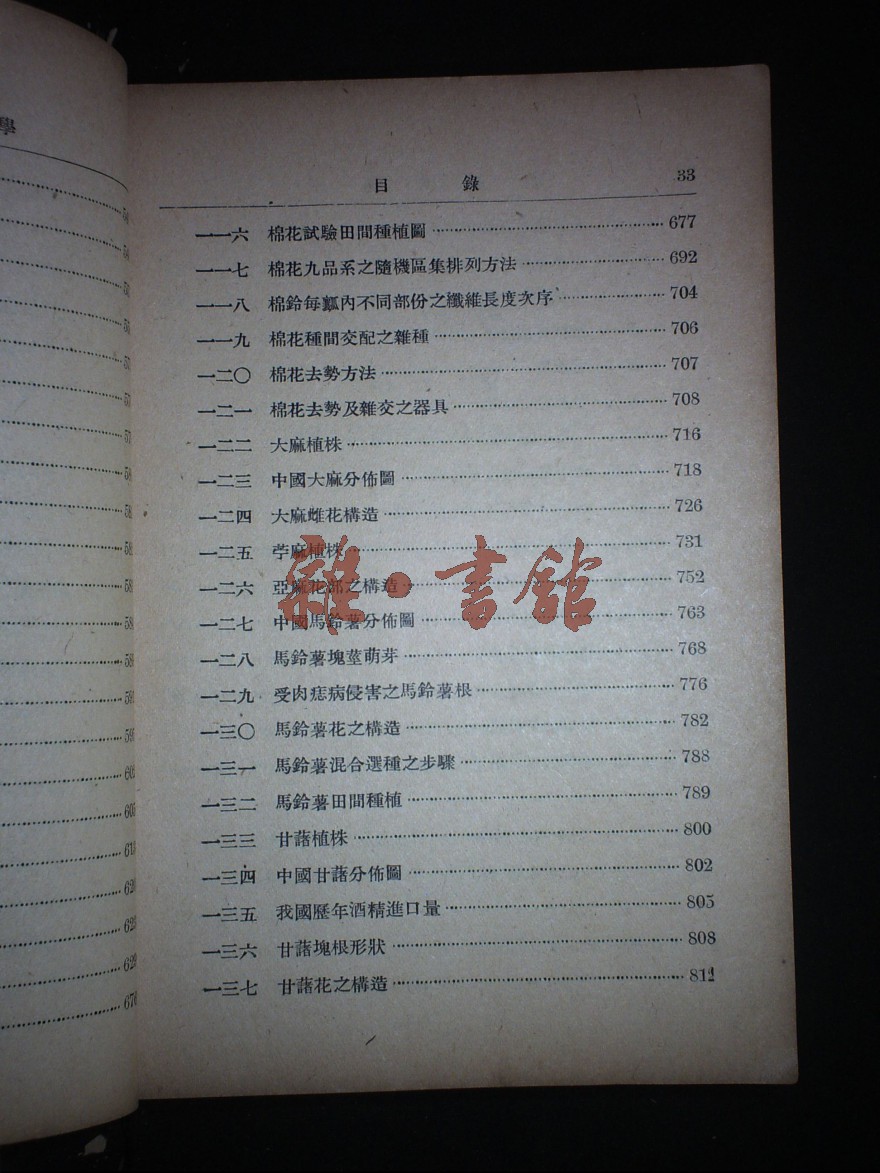 學
54
54
目 錄 33
一一六 棉花試驗田間種植圖 677
一一七 棉花九品系之隨機區集排列方法 692
一一八 棉鈴每瓤內不同部份之纖維長度次序 704
一一九 棉花種間交配之雜種 706
一二〇 棉花去勢方法 707
一二一 棉花去勢及雜交之器具 708
一二二 大麻植株 716
一二三 中國大麻分佈圖 718
一二四 大麻雌花構造 726
一二五 苧麻植株 731
一二六 亞麻花部之構造 752
一二七 中國馬鈴薯分佈圖 763
一二八 馬鈴薯塊莖萌芽 768
一二九 受肉痣病侵害之馬鈴薯根 776
一三〇 馬鈴薯花之構造 782
一三一 馬鈴薯混合選種之步驟 788
一三二 馬鈴薯田間種植 789
一三三 甘藷植株 800
一三四 中國甘藷分佈圖 802
一三五 我國歷年酒精進口量 805
一三六 甘藷塊根形狀 808
一三七 甘藷花之構造 812
雜·書館